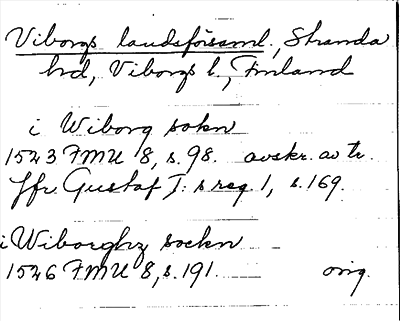 Viborgs landsförsaml., Stranda
hd, Viborgs l., Finland
i Wiborg sokn
1523 FMU 8, s. 98. avskr. av tr.
Jfr. Gustaf I: s reg. 1, s. 169.
i Wiborghz sockn
1526 FMU 8, s. 191. orig.